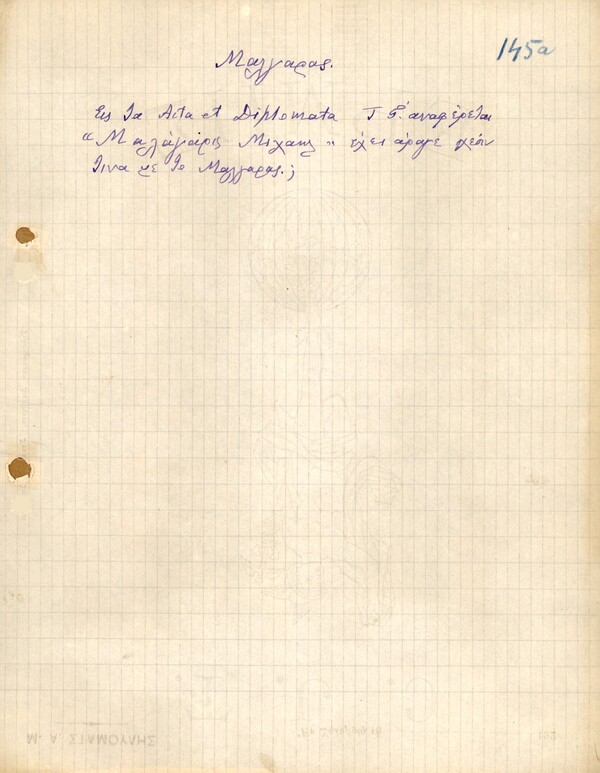 145α
Μαλγαρας.
Εις τα Acta et Diplomata Τ ἀναφέρεται
"Μαλάγαρις Μιχαηλ" ἔχει ἀραγε σχέσιν
τινα με το Μαλγαρας;
Μ. Α. ΣΤΑΜΟΥΛΗΣ